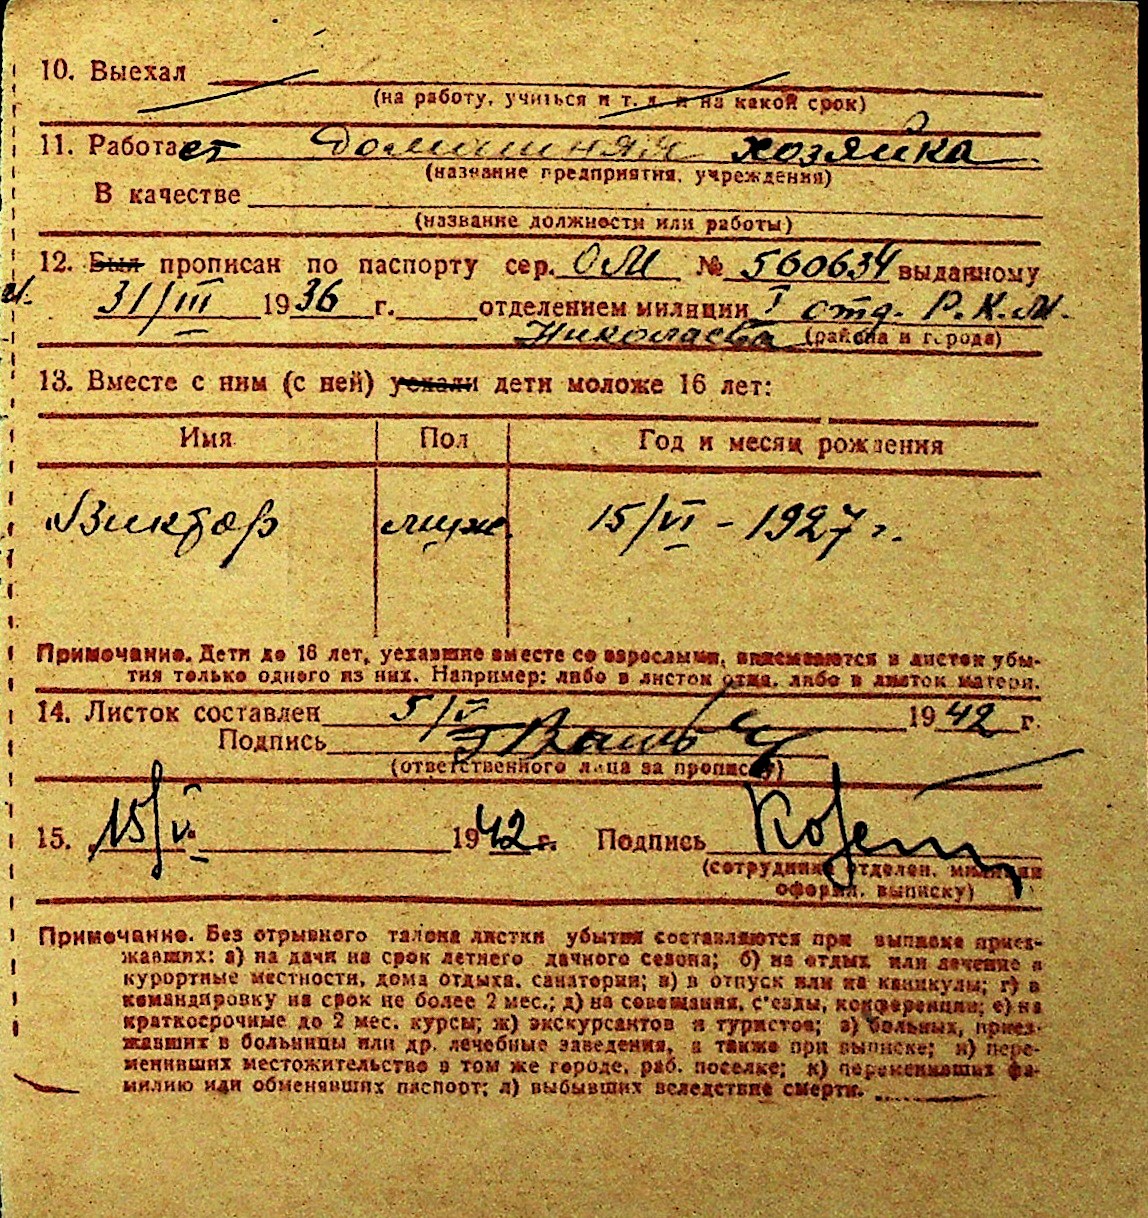 10. Выехал
(на работу, учиться и т. д. и на какой срок)
11. Работает домашняя хозяйка
(название предприятия, учреждения)
В качестве
(название должности или работы)
12. Был прописан по паспорту сер. ОМ № 560634 выданному
31/III 1936 г. отделением милиции I отд. Р.К.М.
Николаева (района и города)
13. Вместе с ним (с ней) уехали дети моложе 16 лет:
Имя Пол Год и месяц рождения
Виктор муж. 15/VI - 1927 г.
Примечание. Дети до 16 лет, уехавшие вместе со взрослыми, вписываются в листок убы-
тия только одного из них. Например: либо в листок отца, либо в листок матери.
14. Листок составлен 5/V 1942 г.
Подпись
(ответственного лица за прописку)
15. 15/V 1942 г. Подпись
(сотрудника отделен. милиции
оформ. выписку)
Примечание. Без отрывного талона листки убытия составляются при выписке приез-
жавших: а) на дачи на срок летнего дачного сезона; б) на отдых или лечение в
курортные местности, дома отдыха, санатории; в) в отпуск или на каникулы; г) в
командировку на срок не более 2 мес.; д) на совещания, с'езды, конференции; е) на
краткосрочные до 2 мес. курсы; ж) экскурсантов и туристов; з) больных, приез-
жавших в больницы или др. лечебные заведения, а также при выписке; и) пере-
менивших местожительство в том же городе, раб. поселке; к) переменивших фа-
милию или обменявших паспорт; л) выбывших вследствие смерти.